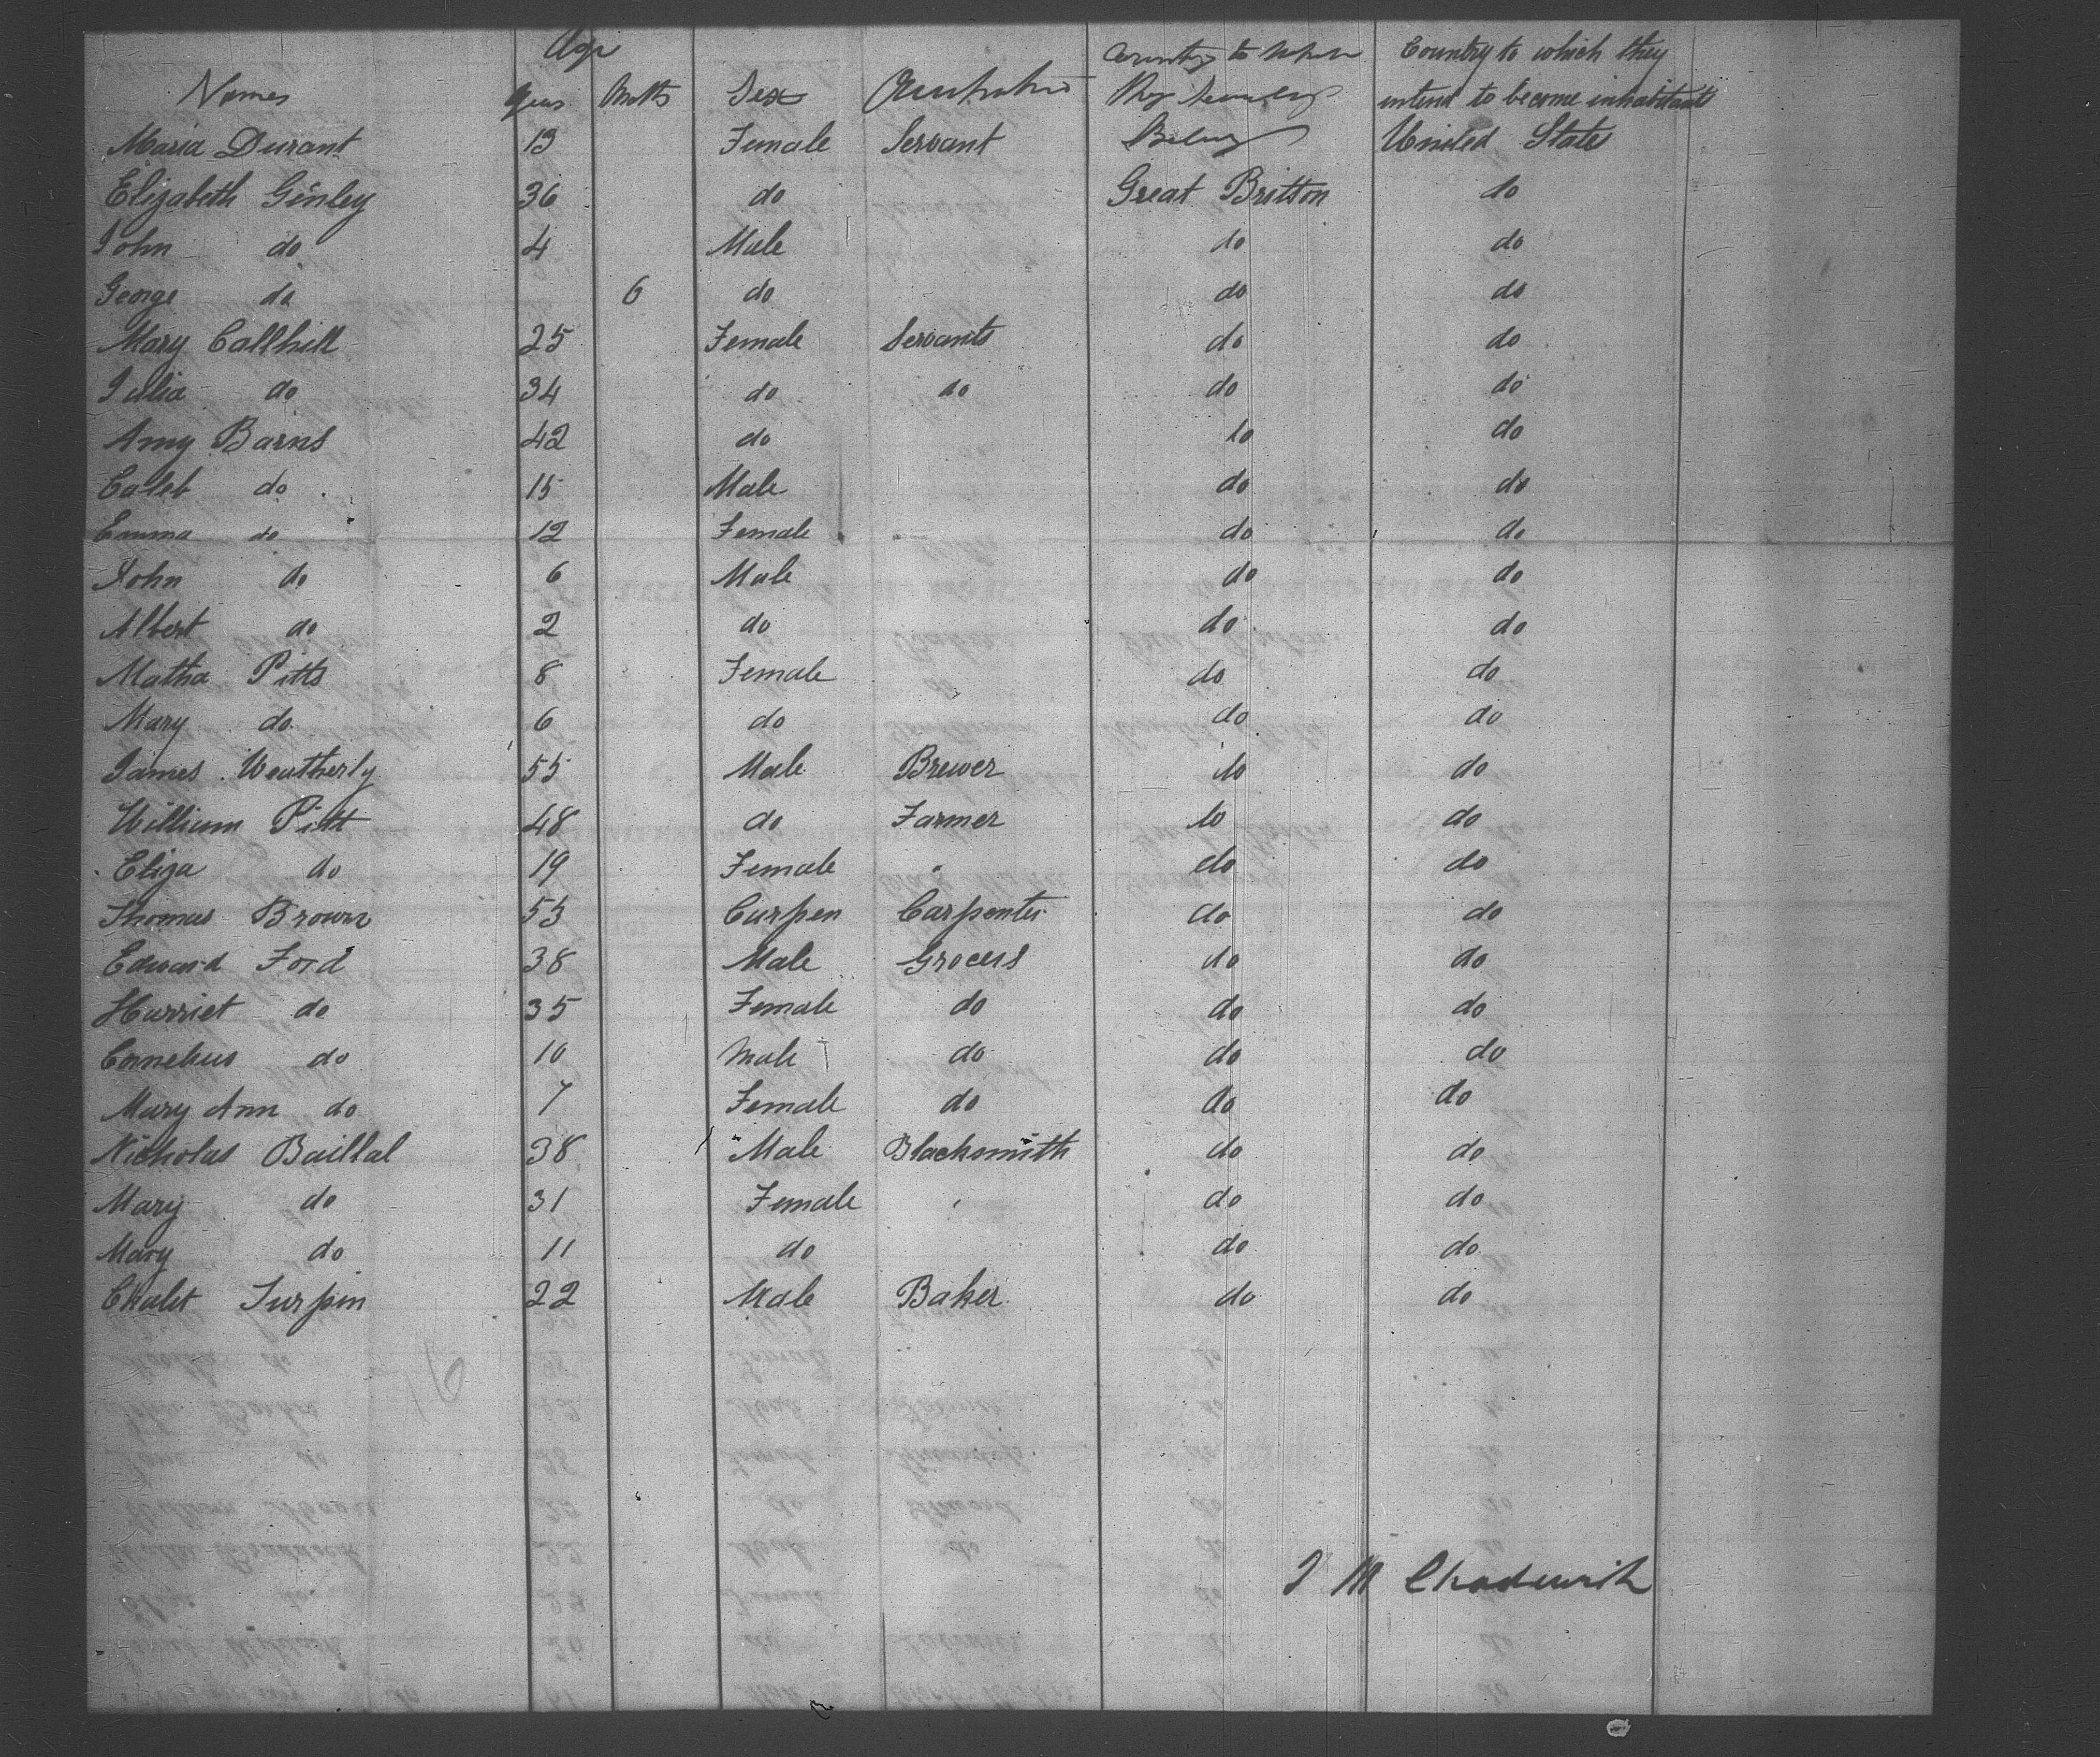 Age Country to which Country to which they
Names Years Mnths Sex they severally intend to become inhabitants
Maria Durant 13 Female Servant Belong United State
Elizabeth Ginley 36 do Great Britton do
John do 4 Male do do
George do 6 do do do
Mary Callhill 25 Female Servants do do
Julia do 34 do do do do
Amy Barns 42 do do do
Caleb do 15 Male do do
Emma do 12 Female do do
John do 6 Male do do
Albert do 2 do do do
Matha Pitts 8 Female do do
Mary do 6 do do do
James Weatherly 55 Male Brewer do do
William Pitt 48 do Farmer do do
Eliza do 19 Female " do do
Thomas Brown 53 Carpen Carpenter do do
Edward Ford 38 Male Grocers do do
Harriet do 35 Female do do do
Cornelius do 10 Male do do do
Mary Ann do 7 Female do do do
Nicholas Baillal 38 Male Blacksmith do do
Mary do 31 Female do do
Mary do 11 do do do
Chalet Turpin 22 Male Baker do do
J M Chadwick